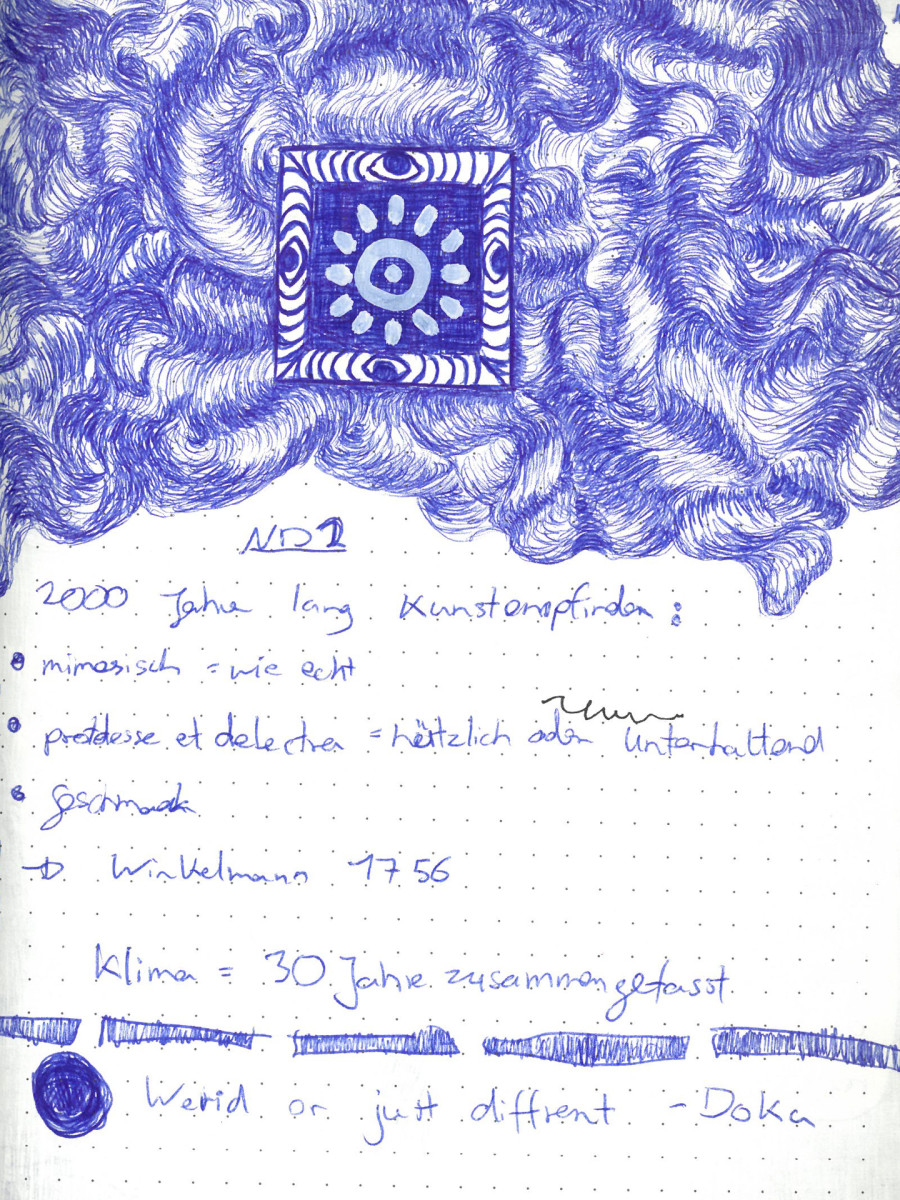 ND1
2000 Jahre lang Kunstempfinden:
• mimesisch = wie echt
• et delectrea = oder Unterhaltend
• Geschmack
→ Winkelmann 1756
Klima = 30 Jahre zusammengefasst
Werid or just diffrent - Doka